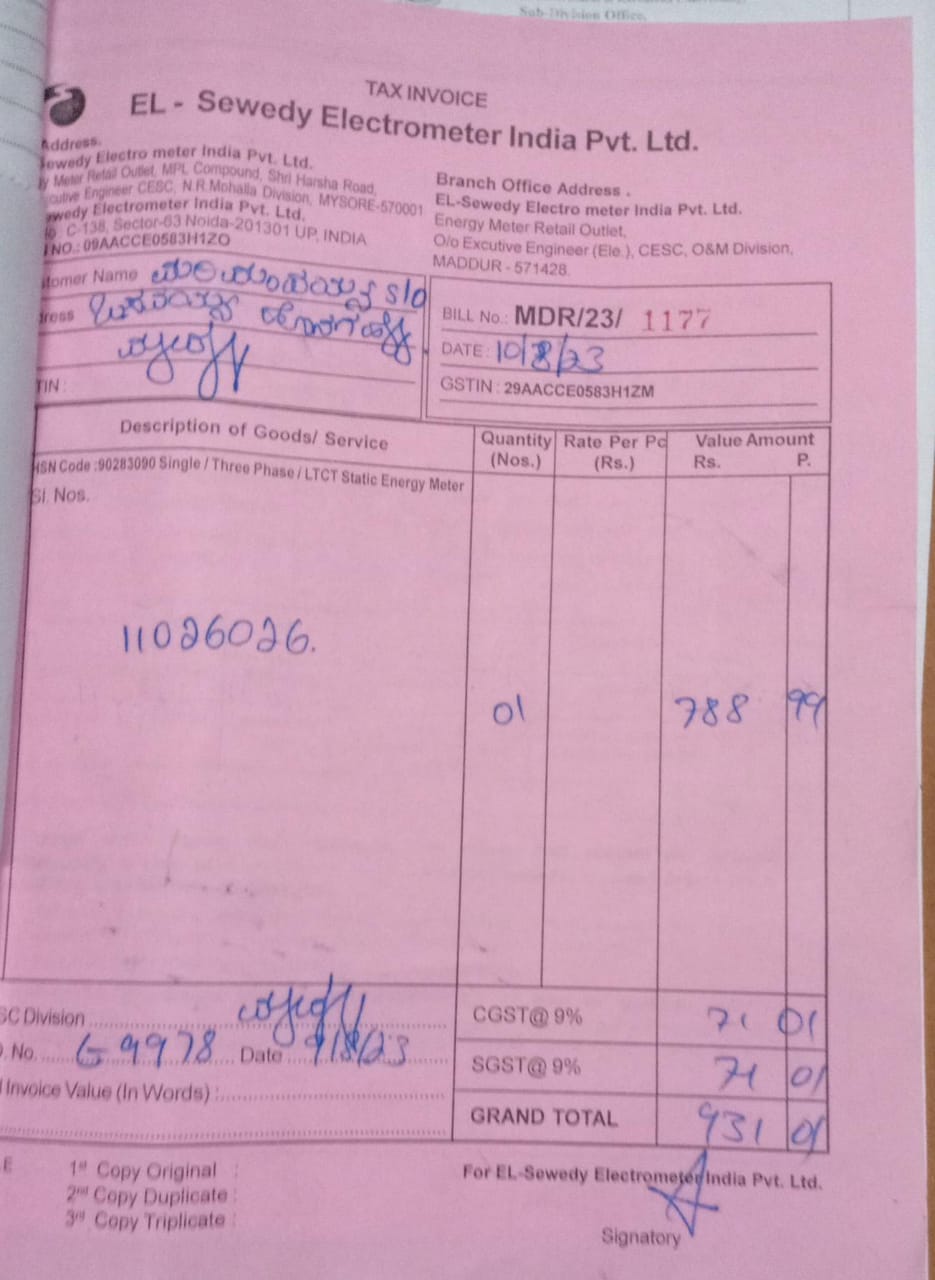 Sub-Division Office,
TAX INVOICE
EL - Sewedy Electrometer India Pvt. Ltd.
Address.
Sewedy Electro meter India Pvt. Ltd.
Meter Retail Outlet, MPL Compound, Shri Harsha Road,
cutive Engineer CESC, N.R.Mohalla Division, MYSORE-570001
wedy Electrometer India Pvt. Ltd.
C-138, Sector-63 Noida-201301 UP, INDIA
NO.: 09AACCE0583H1ZO
Branch Office Address .
EL-Sewedy Electro meter India Pvt. Ltd.
Energy Meter Retail Outlet,
O/o Excutive Engineer (Ele.), CESC, O&M Division,
MADDUR - 571428.
tomer Name S/o
ress
TIN :
BILL No.: MDR/23/ 1177
DATE : 10/8/23
GSTIN : 29AACCE0583H1ZM
Description of Goods/ Service Quantity (Nos.) Rate Per Pc (Rs.) Value Amount Rs. P.
HSN Code :90283090 Single / Three Phase / LTCT Static Energy Meter
Sl. Nos.
11026026.
01 788 99
SC Division
CGST@ 9% 71 01
. No. G 9978 Date 9/8/23
SGST@ 9% 71 01
Invoice Value (In Words) :
GRAND TOTAL 931 01
E 1st Copy Original :
2nd Copy Duplicate :
3rd Copy Triplicate :
For EL-Sewedy Electrometer India Pvt. Ltd.
Signatory